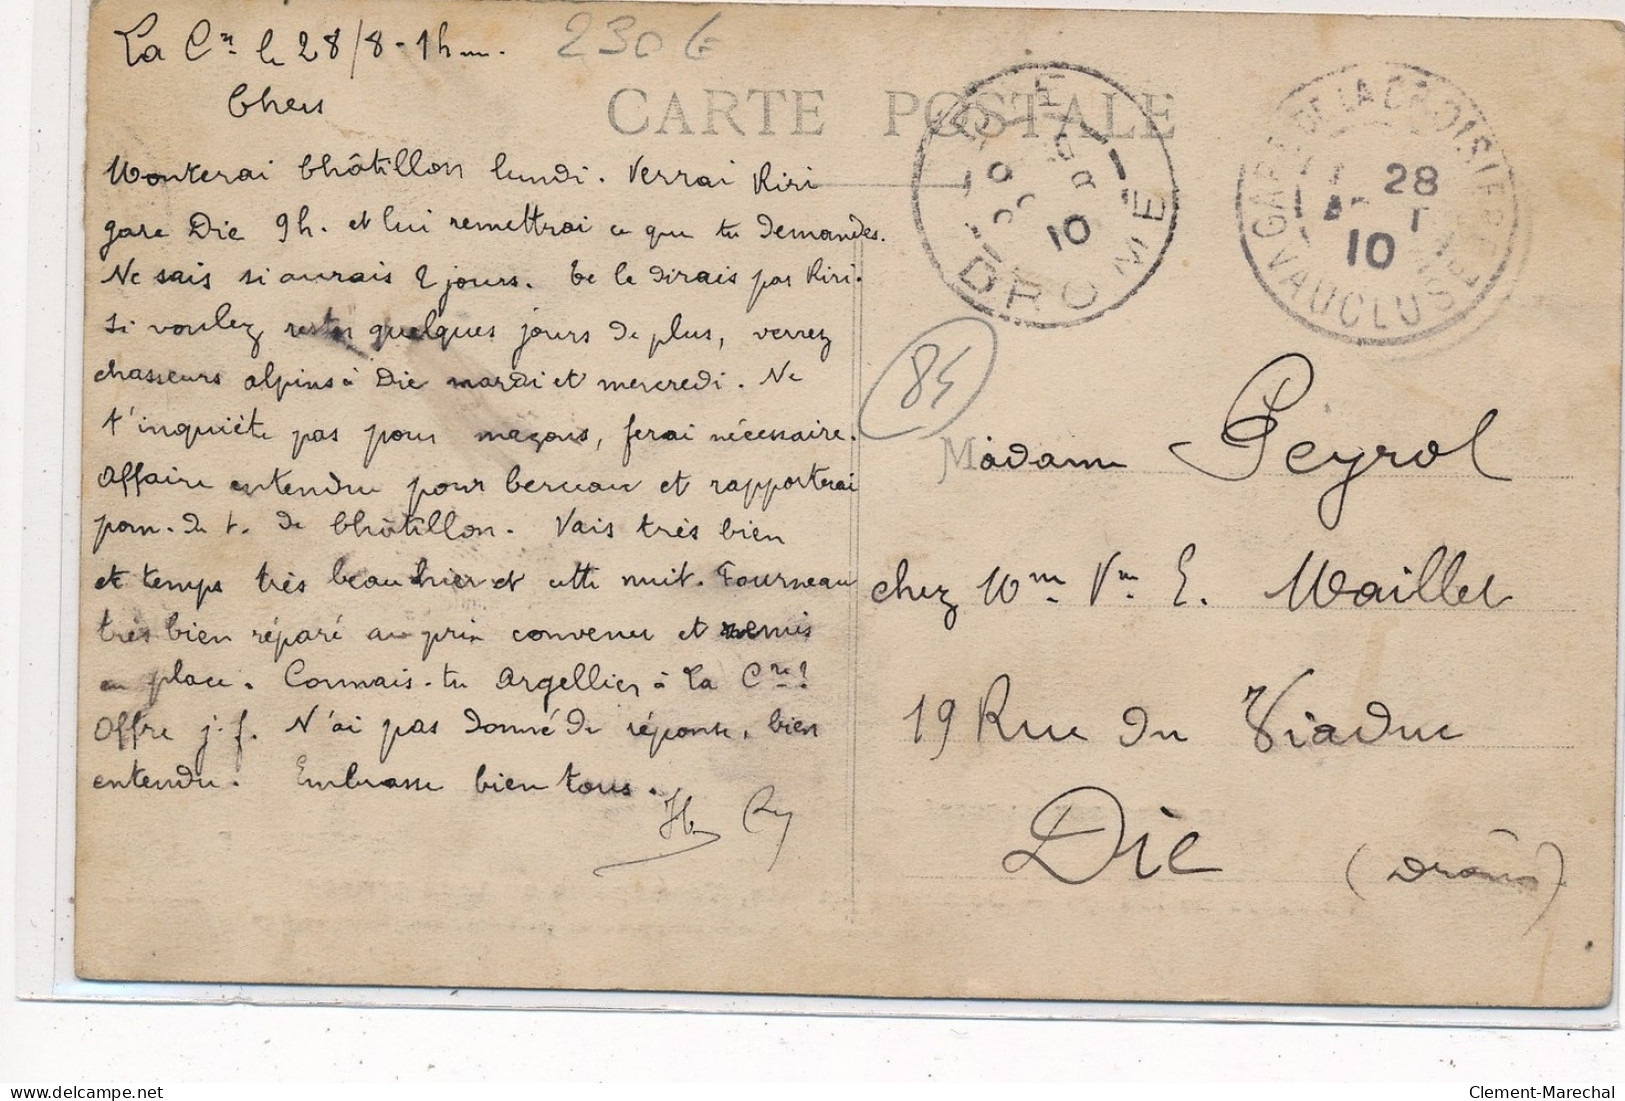 La C^re le 28/8 - 1h m.
230 €
Chers
CARTE POSTALE
DIE
DRÔME
10
GARE DE LA CROISIERE
28
AOUT
10
VAUCLUSE
Monterai Châtillon lundi. Verrai Riri
gare Die 9h. et lui remettrai ce que tu demandes.
Ne sais si aurais 2 jours. te le dirais par Riri.
Si voulez rester quelques jours de plus, verrez
chasseurs alpins à Die mardi et mercredi. Ne
t'inquiète pas pour maçons, ferai nécessaire.
Affaire entendu pour berceau et rapporterai
pom. de t. de Châtillon. Vais très bien
et temps très beau hier et cette nuit. Fourneau
très bien réparé au prix convenu et remis
en place. Connais-tu Argellier à La C^re ?
Offre j. f. N'ai pas donné de réponse, bien
entendu. Embrasse bien tous.
84
Madame Peyrol
chez M^me V^ve E. Maillet
19 Rue du Viaduc
Die (Drôme)
Clement-Marechal